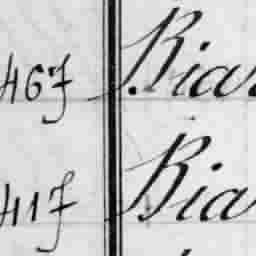 467 Biar
417 Biar